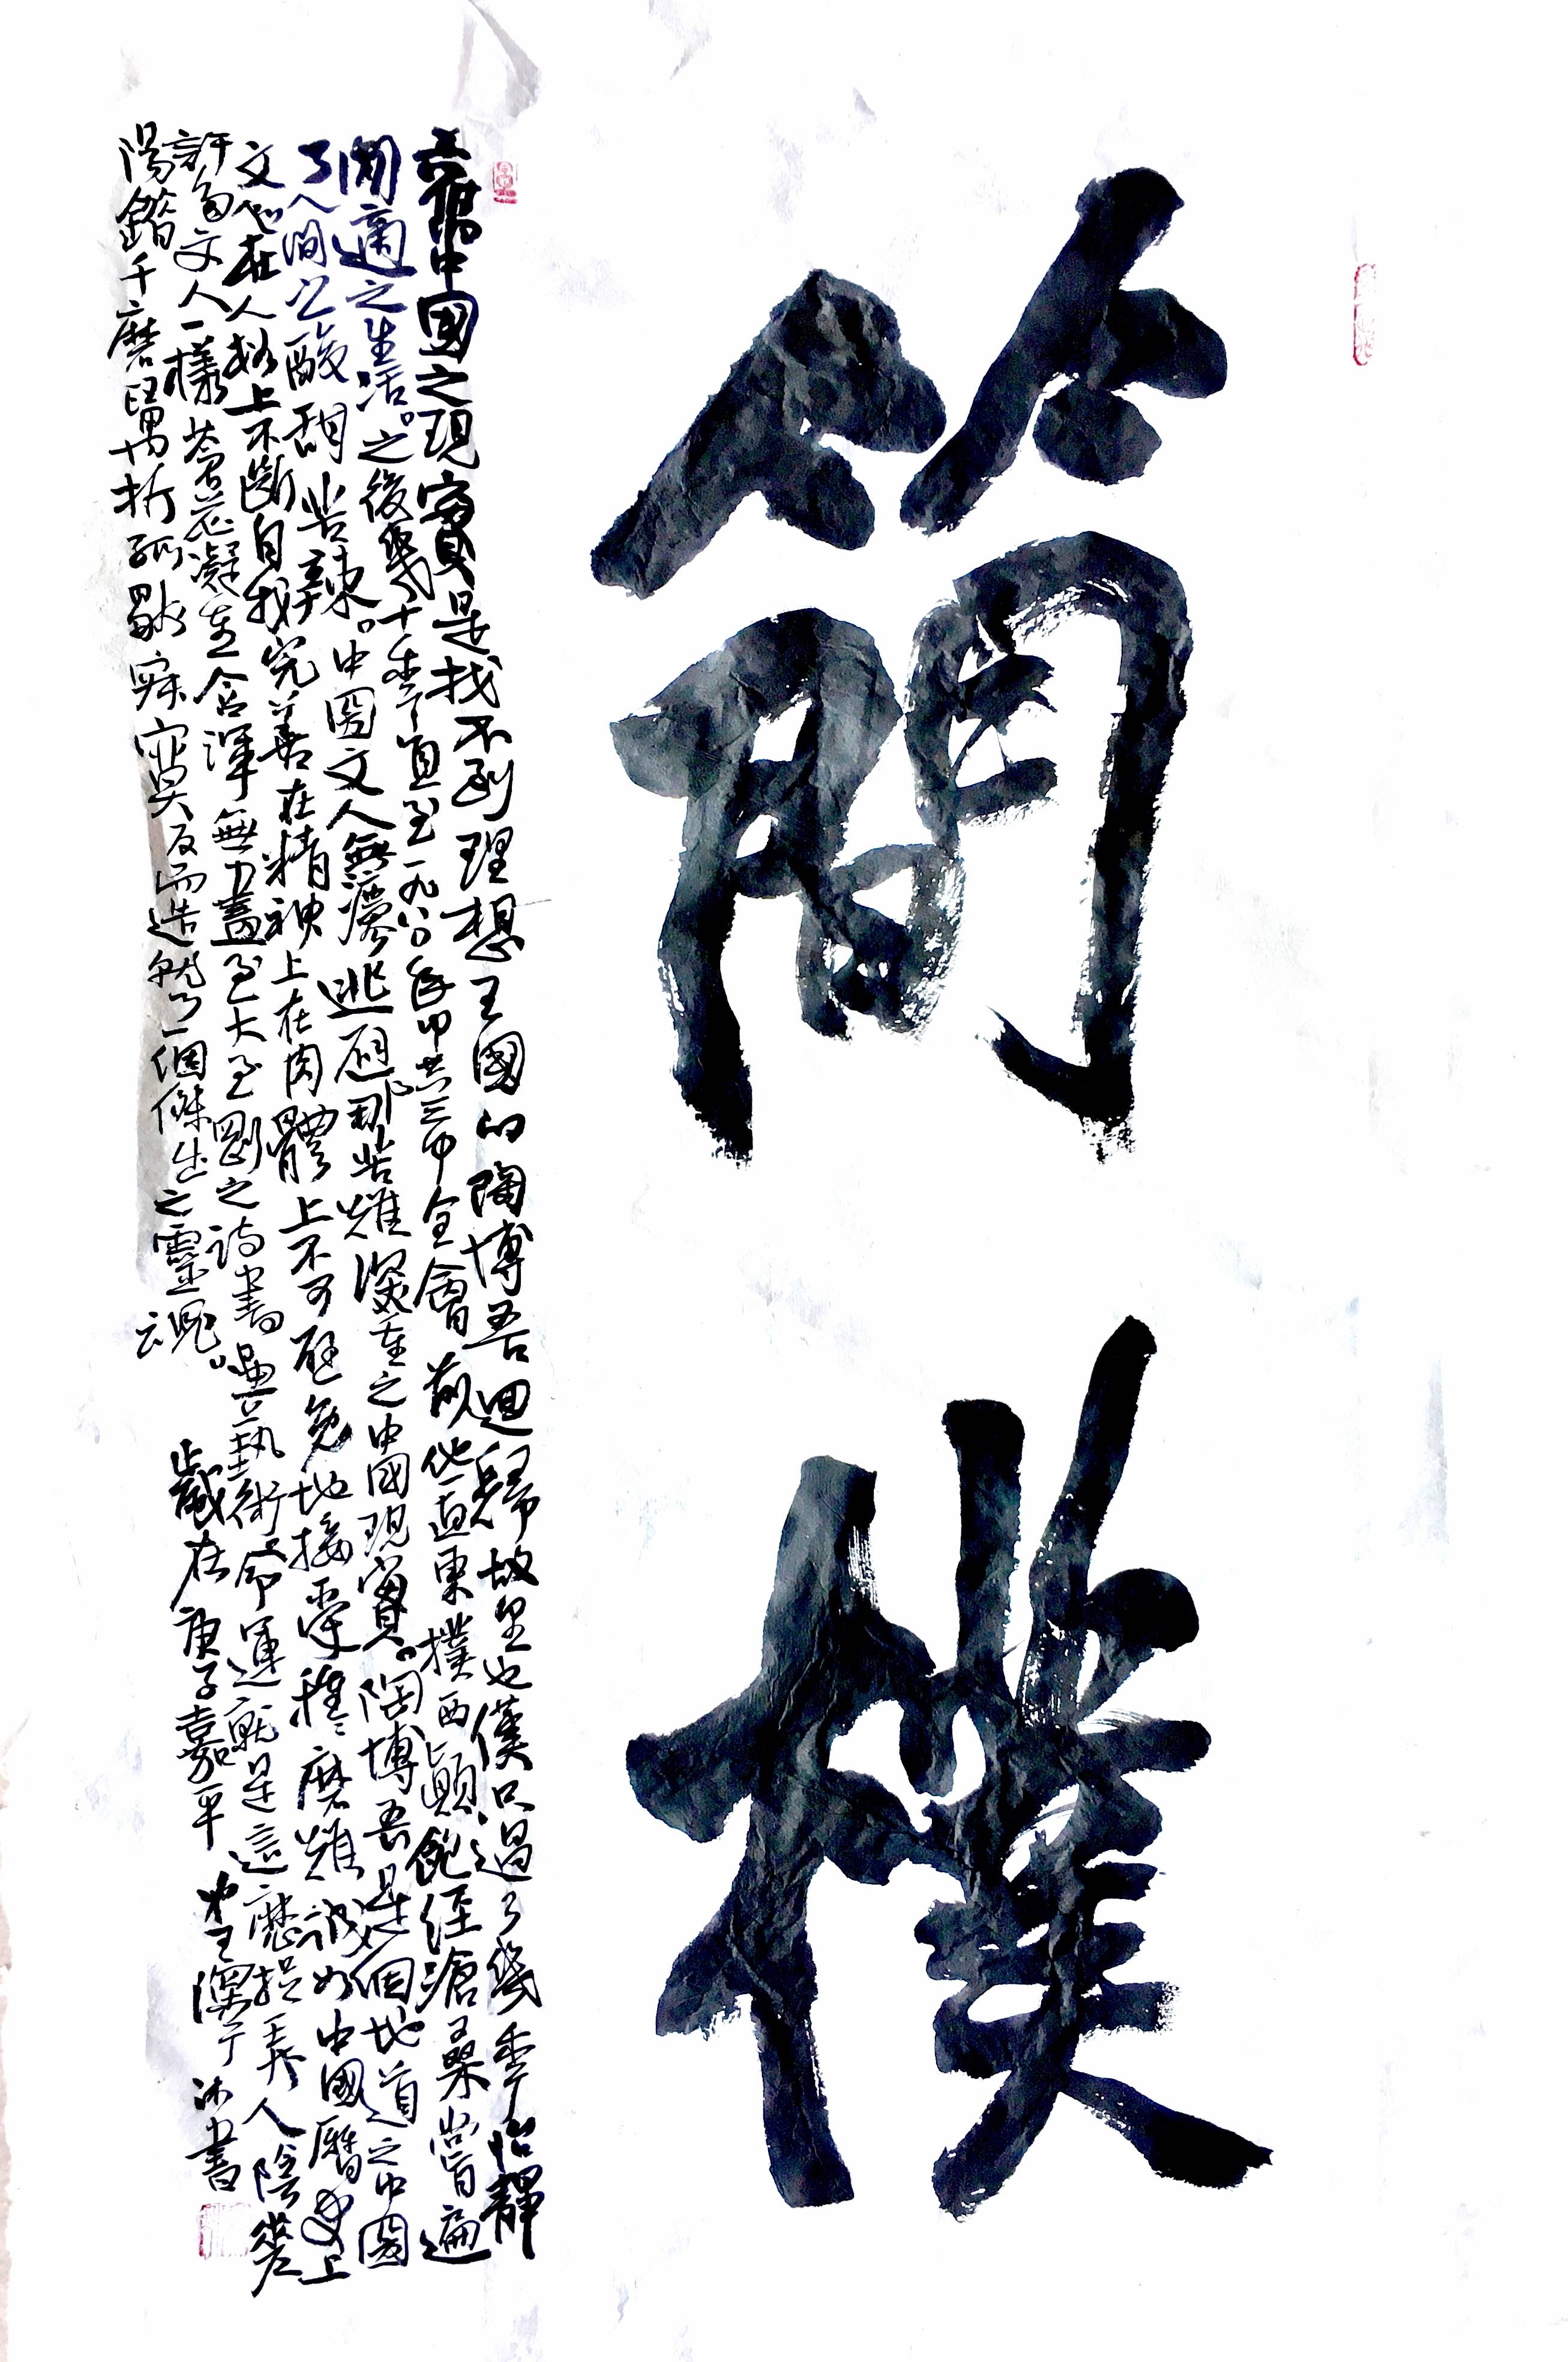 簡樸
舊中國之現實是找不到理想王國的陶博吾迴歸故里也僅只過了幾年恬靜
閒適之生活。之後幾十年直至一九八〇年中共三中全會前他一直東撲西顛飽經滄桑嘗遍
了人間之酸甜苦辣。中國文人無處逃避那苦難深重之中國現實。陶博吾是個地道之中國
文人在人格上不斷自我完善在精神上在肉體上不可避免地接受種種磨難誠如中國歷史上
許多文人一樣蒼茫凝重含渾無盡至大至剛之詩書畫藝術命運就是這麼捉弄人陰差
陽錯千磨萬折孤獨寂寞反而造就了一個傑出之靈魂。云
歲在庚子嘉平 沐書